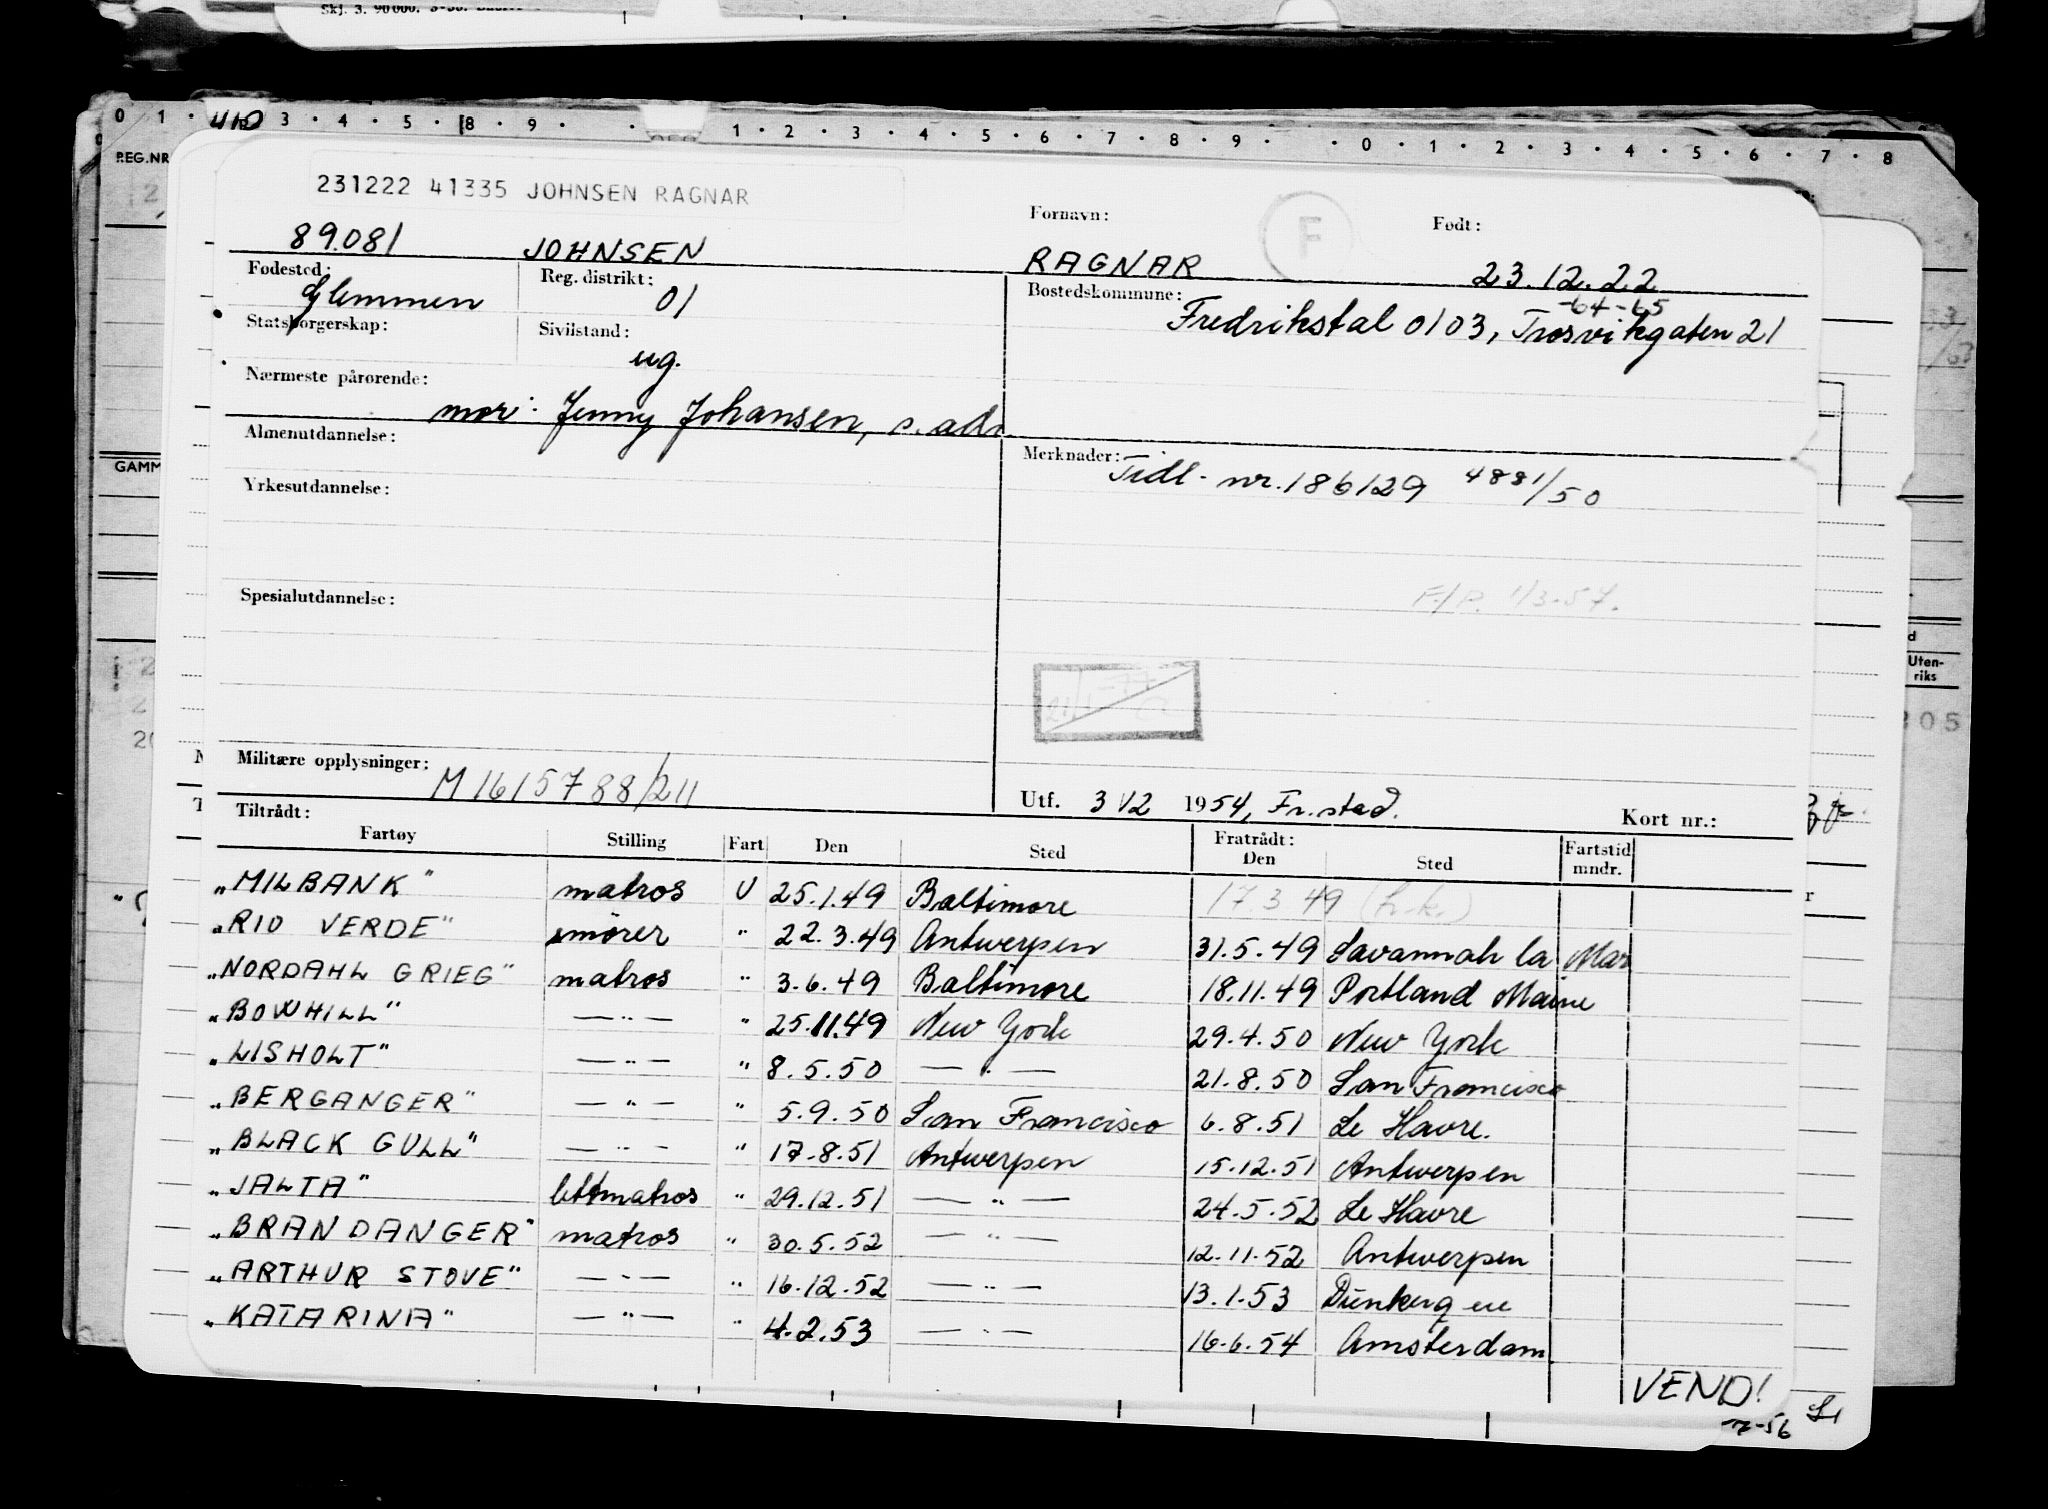 Skj. 3. 90000. 3-50.
0 1 410 3 4 5 8 9 1 2 3 4 5 6 7 8 9 0 1 2 3 4 5 6 7 8
REG.NR
231222 41335 JOHNSEN RAGNAR
Fornavn: F Født:
89081 JOHNSEN RAGNAR 23.12.22
Fødested: Glemmen Reg. distrikt: 01 Bostedskommune: -64-65
Fredrikstal 0103, Trosvikgaten 21
Statsborgerskap: Sivilstand: ug.
Nærmeste pårørende: mor: Jenny Johansen, s. adr.
Almenutdannelse: Merknader: Tidl. nr. 186129 4881/50
GAMM
Yrkesutdannelse:
Spesialutdannelse: F./P. 1/3-57.
Uten-
riks
305
Militære opplysninger: M1615788/211
Utf. 3/12 1954, Fr.stad. Kort nr.:
Tiltrådt: Fratrådt:
Fartøy Stilling Fart Den Sted Den Sted Fartstid mndr.
"MILBANK" matros U 25.1.49 Baltimore 17.3.49 (h.k.)
"RIO VERDE" smører " 22.3.49 Antwerpen 31.5.49 Savannah la Mar
"NORDAHL GRIEG" matros " 3.6.49 Baltimore 18.11.49 Portland Maine
"BOWHILL" — " — " 25.11.49 New York 29.4.50 New York
"LISHOLT" — " — " 8.5.50 — " — 21.8.50 San Francisco
"BERGANGER" — " — " 5.9.50 San Francisco 6.8.51 Le Havre.
"BLACK GULL" — " — " 17.8.51 Antwerpen 15.12.51 Antwerpen
"JALTA" lettmatros " 29.12.51 — " — 24.5.52 Le Havre
"BRANDANGER" matros " 30.5.52 — " — 12.11.52 Antwerpen
"ARTHUR STOVE" — " — " 16.12.52 — " — 13.1.53
"KATARINA" — " — " 4.2.53 — " — 16.6.54 Amsterdam
VEND!